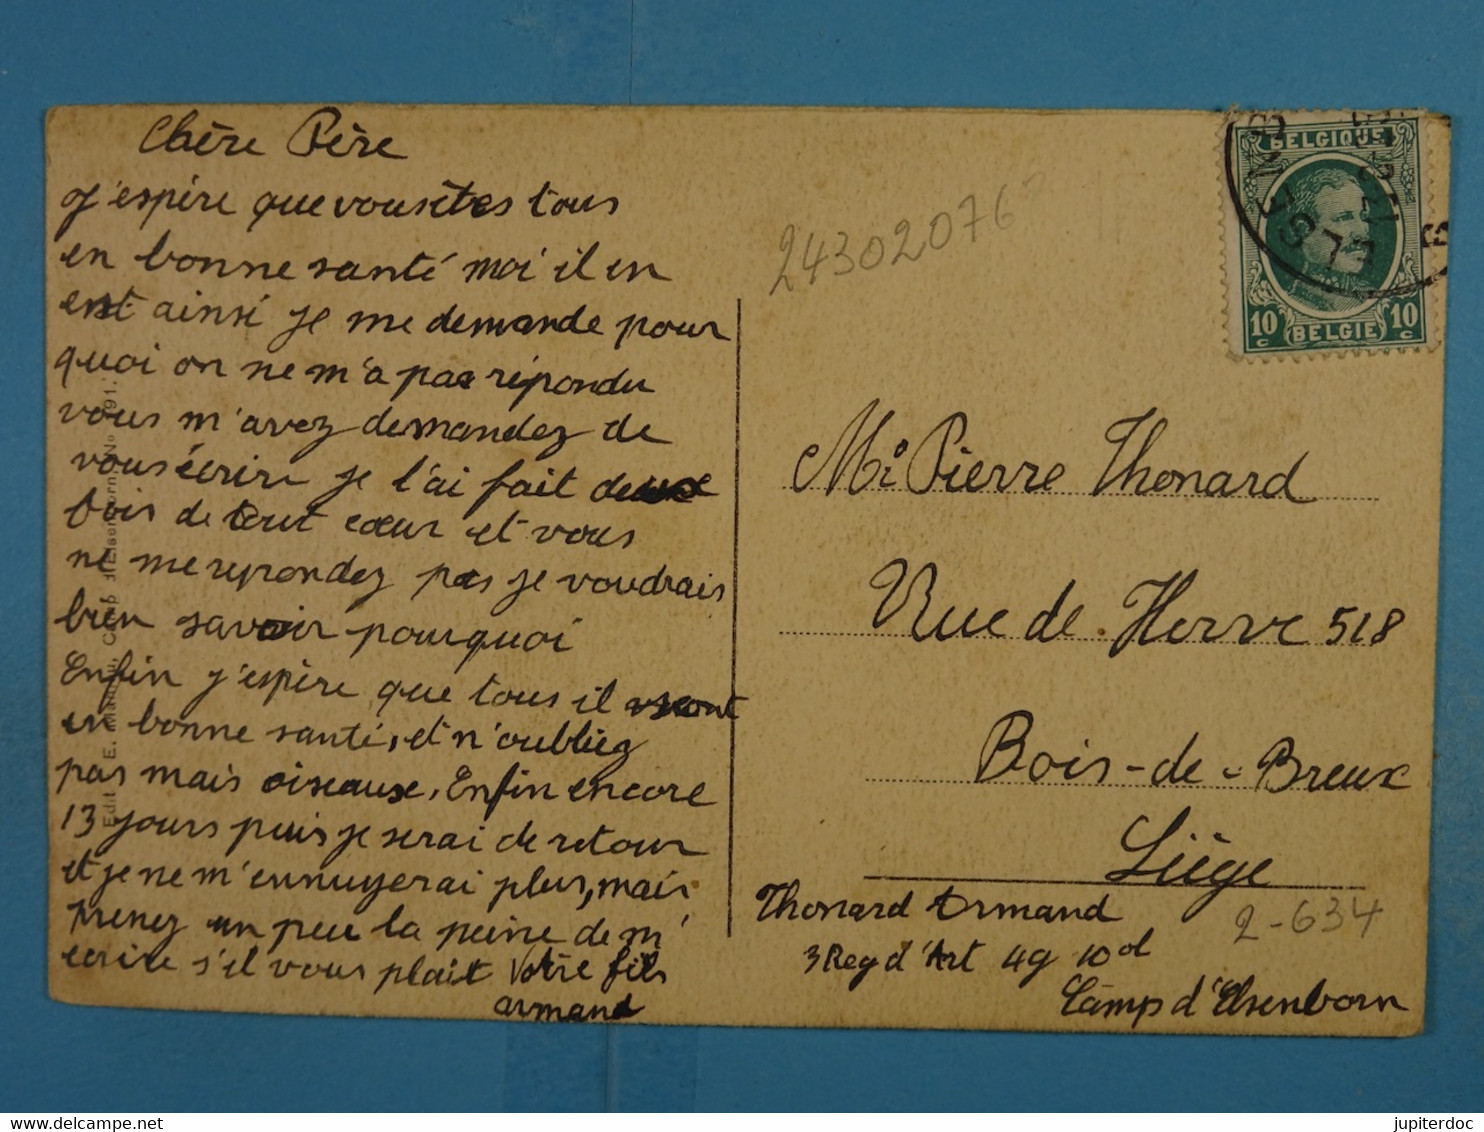 Chère Père
J'espère que vous êtes tous
en bonne santé moi il en
est ainsi je me demande pour
quoi on ne m'a pas répondu
vous m'avez demandez de
vous écrire je l'ai fait deux
fois de tout cœur et vous
ne me repondez pas je voudrais
bien savoir pourquoi
Enfin j'espère que tous il seront
en bonne santé, et n'oubliez
pas mais oiseaux, Enfin encore
13 jours puis je serai de retour
et je ne m'ennuyerai plus, mais
prenez un peu la peine de m'
ecrire s'il vous plait Votre fils
armand
24302076
BELGIQUE
10 c BELGIE 10 c
Mr Pierre Thonard
Rue de Herve 518
Bois-de-Breux
Liège
2-634
Thonard Armand
3 Reg d'Art 4g 10d
Camp d'Elsenborn
jupiterdoc